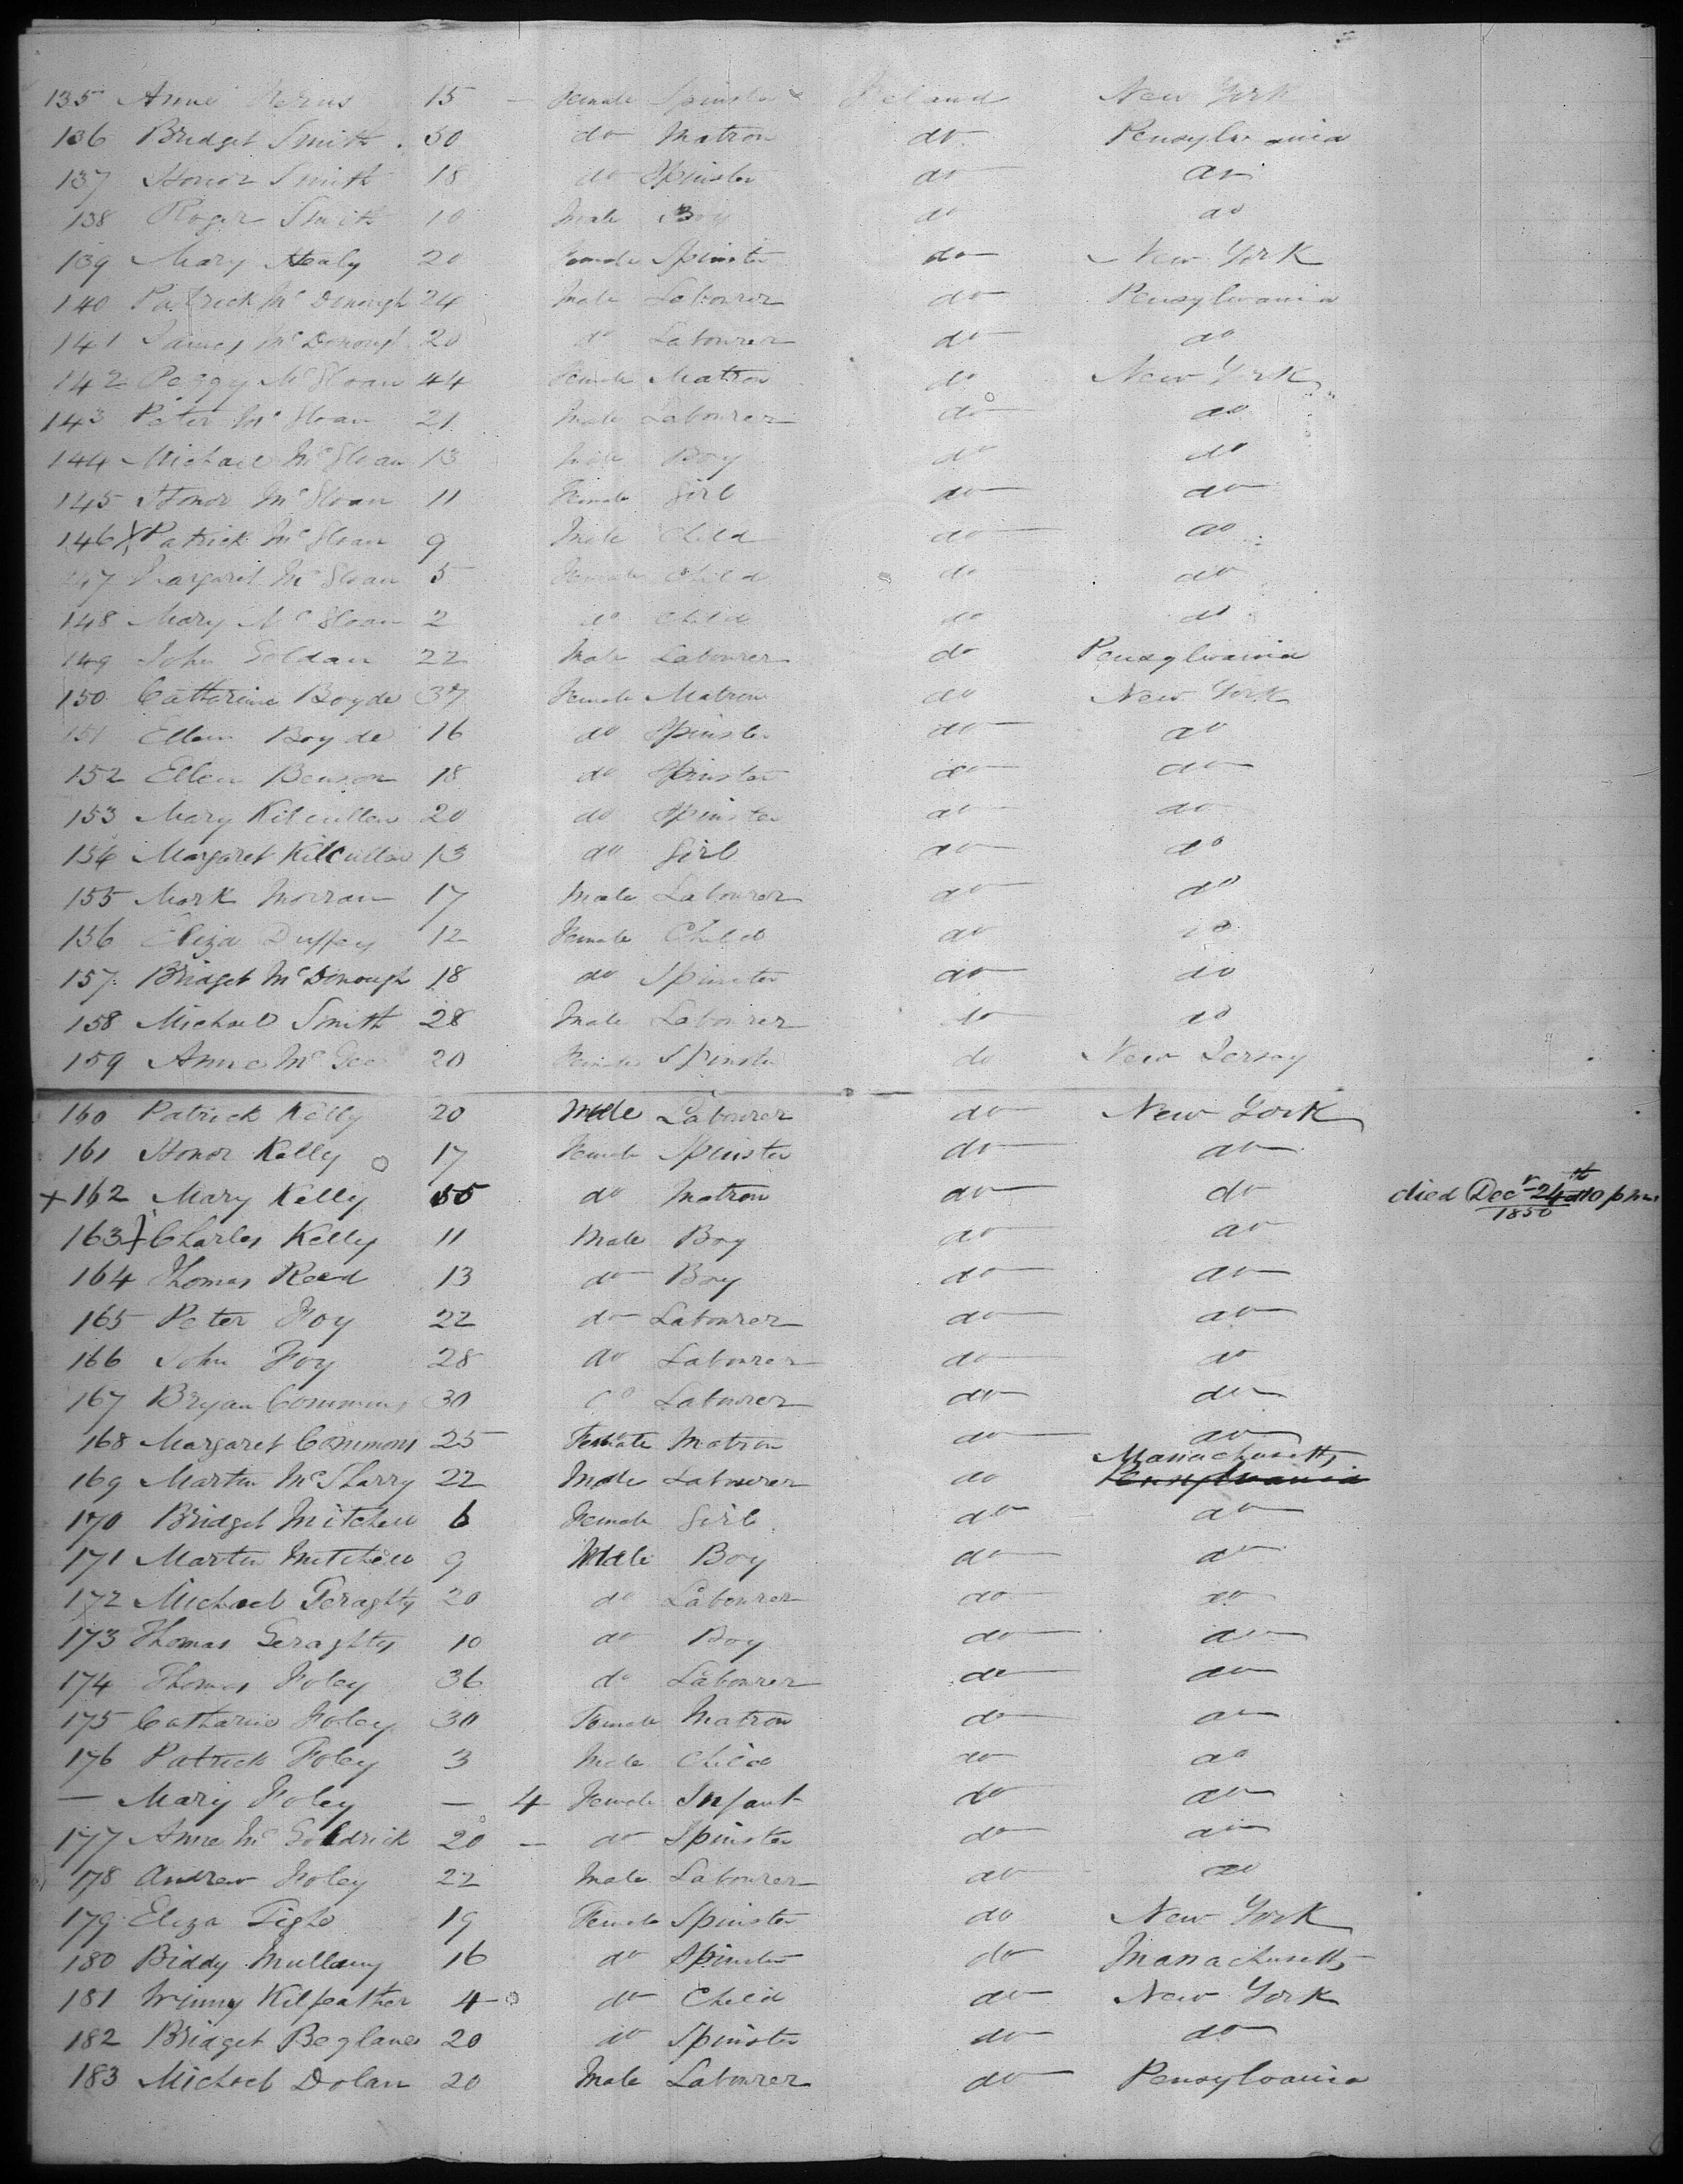 135 Anne 15 — Female Spinster Ireland New York
136 Bridget Smith 50 do Matron do Pensylvania
137 Honor Smith 18 do Spinster do do
138 Roger Smith 10 Male Boy do do
139 Mary Healy 20 Female Spinster do New York
140 Patrick McDonough 24 Male Labourer do Pensylvania
141 James McDonough 20 do Labourer do do
142 Peggy McSloan 44 Female Matron do New York
143 Peter McSloan 21 Male Labourer do do
144 Michael McSloan 13 Male Boy do do
145 Honor McSloan 11 Female Girl do do
146 Patrick McSloan 9 Male Child do do
147 Margaret McSloan 5 Female Child do do
148 Mary McSloan 2 do Child do do
149 John Goldan 22 Male Labourer do Pensylvania
150 Catharine Boyde 37 Female Matron do New York
151 Ellen Boyde 16 do Spinster do do
152 Ellen Benson 18 do Spinster do do
153 Mary Kilcullen 20 do Spinster do do
154 Margaret Kilcullen 13 do Girl do do
155 Mark Morran 17 Male Labourer do do
156 Eliza Duffey 12 Female Child do do
157 Bridget McDonough 18 do Spinster do do
158 Michael Smith 28 Male Labourer do do
159 Anne McGee 20 Female Spinster do New Jersey
160 Patrick Kelly 20 Male Labourer do New York
161 Honor Kelly 17 Female Spinster do do
+ 162 Mary Kelly 55 do Matron do do died Decr 24th at 10 pm 1850
163 Charles Kelly 11 Male Boy do do
164 Thomas Reed 13 do Boy do do
165 Peter Foy 22 do Labourer do do
166 John Foy 28 do Labourer do do
167 Bryan Commons 30 do Labourer do do
168 Margaret Commons 25 Female Matron do do
169 Martin McSharry 22 Male Labourer do Massachusetts Pensylvania
170 Bridget Mitchell 6 Female Girl do do
171 Martin Mitchell 9 Male Boy do do
172 Michael Geraghty 20 do Labourer do do
173 Thomas Geraghty 10 do Boy do do
174 Thomas Foley 36 do Labourer do do
175 Catharine Foley 30 Female Matron do do
176 Patrick Foley 3 Male Child do do
— Mary Foley — 4 Female Infant do do
177 Anne McGoldrick 20 — do Spinster do do
178 Andrew Foley 22 Male Labourer do do
179 Eliza Tighe 19 Female Spinster do New York
180 Biddy Mullany 16 do Spinster do Massachusetts
181 Winny Kilfeather 4 do Child do New York
182 Bridget Beglane 20 do Spinster do do
183 Michael Dolan 20 Male Labourer do Pensylvania